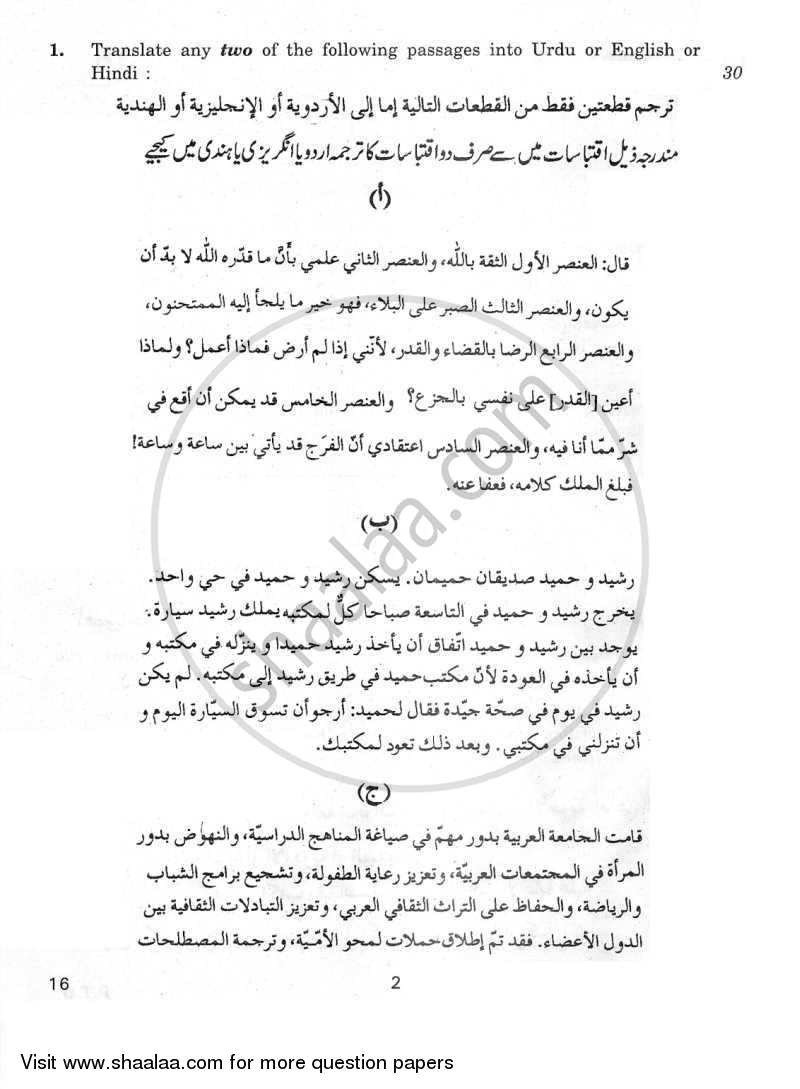 1. Translate any two of the following passages into Urdu or English or
Hindi : 30
ترجم قطعتين فقط من القطعات التالية إما إلى الأردوية أو الإنجليزية أو الهندية
مندرجہ ذیل اقتباسات میں سے صرف دو اقتباسات کا ترجمہ اردو یا انگریزی یا ہندی میں کیجیے
(أ)
قال: العنصر الأول الثقة بالله، والعنصر الثاني علمي بأنَّ ما قدّره الله لا بدّ أن
يكون، والعنصر الثالث الصبر على البلاء، فهو خير ما يلجأ إليه الممتحنون،
والعنصر الرابع الرضا بالقضاء والقدر، لأنّني إذا لم أرض فماذا أعمل؟ ولماذا
أعين [القدر] على نفسي بالجزع؟ والعنصر الخامس قد يمكن أن أقع في
شرّ ممّا أنا فيه، والعنصر السادس اعتقادي أنّ الفرَج قد يأتي بين ساعة وساعة!
فبلغ الملك كلامه، فعفا عنه.
(ب)
رشيد و حميد صديقان حميمان. يسكن رشيد و حميد في حي واحد.
يخرج رشيد و حميد في التاسعة صباحا كلٌّ لمكتبه يملك رشيد سيارة.
يوجد بين رشيد و حميد اتّفاق أن يأخذ رشيد حميدا و ينزّله في مكتبه و
أن يأخذه في العودة لأنّ مكتب حميد في طريق رشيد إلى مكتبه. لم يكن
رشيد في يوم في صحّة جيّدة فقال لحميد: أرجو أن تسوق السيّارة اليوم و
أن تنزلني في مكتبي. وبعد ذلك تعود لمكتبك.
(ج)
قامت الجامعة العربية بدور مهمّ في صياغة المناهج الدراسيّة، والنهوض بدور
المرأة في المجتمعات العربيّة، وتعزيز رعاية الطفولة، وتشجيع برامج الشباب
والرياضة، والحفاظ على التراث الثقافي العربي، وتعزيز التبادلات الثقافية بين
الدول الأعضاء. فقد تمّ إطلاق حملات لمحو الأمّيّة، وترجمة المصطلحات
16 2
shaalaa.com
Visit www.shaalaa.com for more question papers